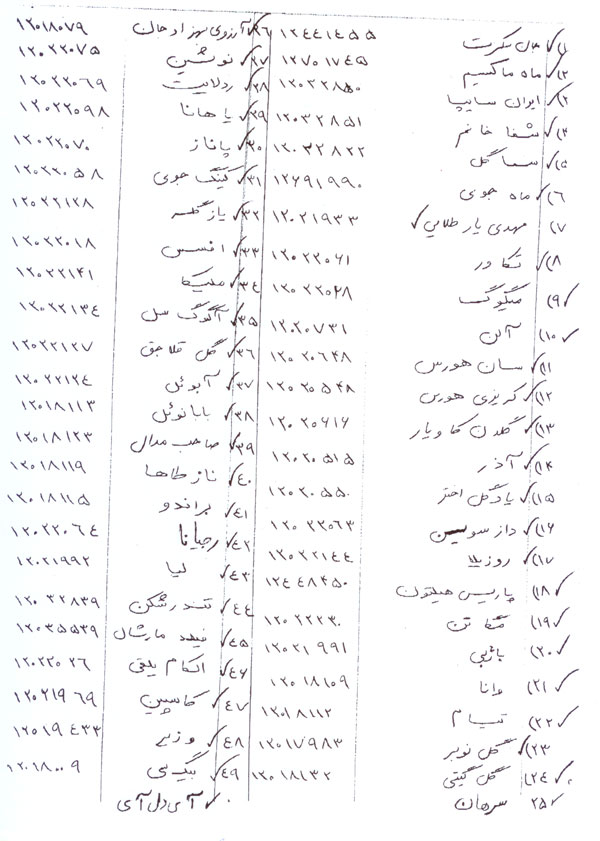 ۱) جان سکرت ۱۲۴۴۱۴۵۵
۲) ماه ماکسیم ۱۲۷۰۱۷۴۵
۳) ایوان ساپیا ۱۲۰۳۲۸۵۰
۴) شفا خانم ۱۲۰۳۲۸۵۱
۵) سما گل ۱۲۰۳۲۸۲۲
۶) ماه جوی ۱۲۶۹۱۹۹۰
۷) مهدی یار طلایی ۱۲۰۲۱۹۳۳
۸) تکاور ۱۲۰۲۲۰۶۱
۹) ۱۲۰۲۲۰۲۸
۱۰) آلن ۱۲۰۲۰۷۳۱
۱۱) سان هورس ۱۲۰۲۰۶۴۸
۱۲) کریزی هورس ۱۲۰۲۰۵۴۸
۱۳) گلدن کاویار ۱۲۰۲۰۶۱۶
۱۴) آذر ۱۲۰۲۰۵۱۵
۱۵) یادگل اختر ۱۲۰۲۰۵۵۰
۱۶) ۱۲۰۲۲۰۶۳
۱۷) روزیلا ۱۲۰۲۲۱۴۴
۱۸) پاریس هیلتون ۱۲۴۴۸۴۵۰
۱۹) ۱۲۰۲۲۲۳۰
۲۰) باربی ۱۲۰۲۱۹۹۱
۲۱) وانا ۱۲۰۱۸۱۰۹
۲۲) تیام ۱۲۰۱۸۱۱۲
۲۳) گل نوبر ۱۲۰۱۷۹۸۳
۲۴) گل گیتی ۱۲۰۱۸۱۳۲
۲۵ سرهان
۲۶ آرزوی بهزاد خان ۱۲۰۱۸۰۷۹
۲۷ نوشین ۱۲۰۲۲۰۷۵
۲۸ ردلایت ۱۲۰۲۲۰۶۹
۲۹ یا هانا ۱۲۰۲۲۰۹۸
۳۰ پاناز ۱۲۰۲۲۰۷۰
۳۱ کینگ جوی ۱۲۰۲۲۰۵۸
۳۲ ۱۲۰۲۲۱۲۸
۳۳ افسس ۱۲۰۲۲۰۱۸
۳۴ ملیکا ۱۲۰۲۲۱۴۱
۳۵ آگوگ سل ۱۲۰۲۲۱۳۴
۳۶ گل قلاجق ۱۲۰۲۲۱۲۷
۳۷ آیوئل ۱۲۰۲۲۱۲۴
۳۸ بابانوئل ۱۲۰۱۸۱۱۳
۳۹ صاحب مدال ۱۲۰۱۸۱۲۳
۴۰ ناز طاها ۱۲۰۱۸۱۱۹
۴۱ براندو ۱۲۰۱۸۱۱۵
۴۲ رجیانا ۱۲۰۲۲۰۶۴
۴۳ لیا ۱۲۰۲۱۹۹۲
۴۴ تندرشکن ۱۲۰۳۲۸۳۹
۴۵ فیلد مارشال ۱۲۰۳۵۵۳۹
۴۶ یلقی ۱۲۰۲۲۰۲۶
۴۷ کاسپین ۱۲۰۲۱۹۶۹
۴۸ وزیر ۱۲۰۱۹۴۳۳
۴۹ بیگ بی ۱۲۰۱۸۰۰۹
آی دل آی